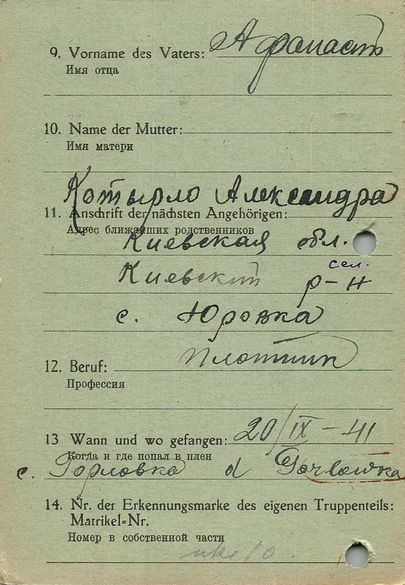 9. Vorname des Vaters: Афанасть
Имя отца
10. Name der Mutter:
Имя матери
Котырло Александра
11. Anschrift der nächsten Angehörigen:
Адрес ближайших родственников
Киевская обл.
сел.
Киевский р-н
с. Юровка
Плотник
12. Beruf:
Профессия
13 Wann und wo gefangen: 20/IX-41
Когда и где попал в плен
с. Горловка d Gorlowka
14. Nr. der Erkennungsmarke des eigenen Truppenteils:
Matrikel=Nr.
Номер в собственной части